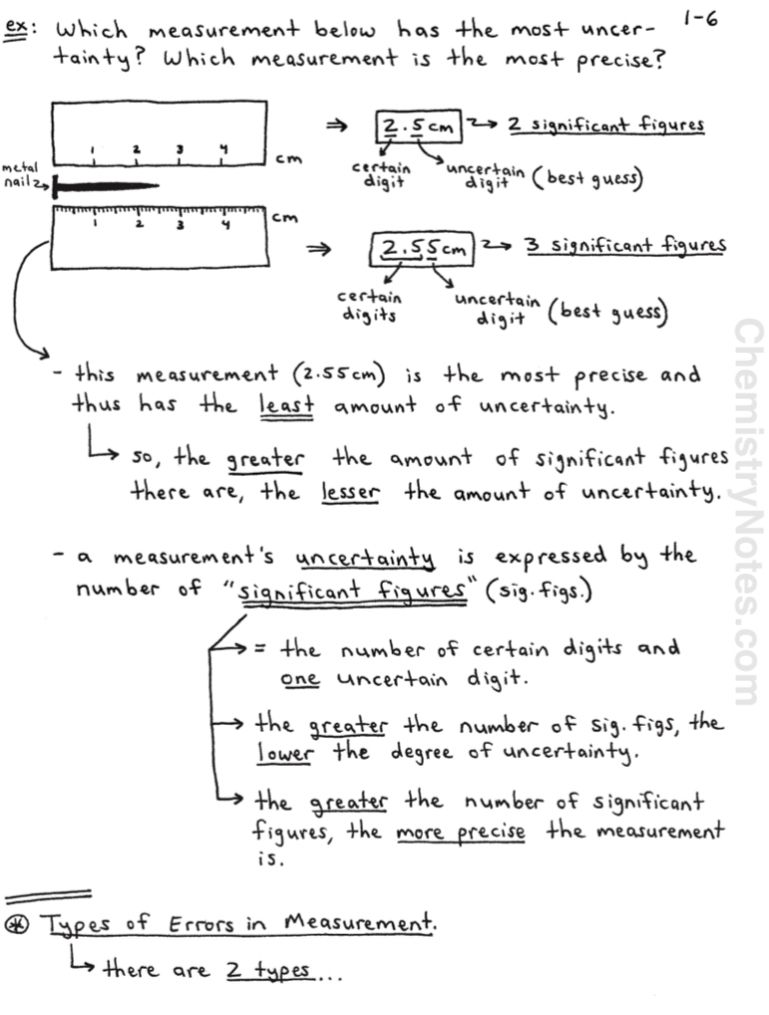 1-6
ex: Which measurement below has the most uncer-
tainty? Which measurement is the most precise?
1 2 3 4 cm
⇒ 2.5cm → 2 significant figures
certain digit
uncertain digit (best guess)
metal nail
1 2 3 4 cm
⇒ 2.55cm → 3 significant figures
certain digits
uncertain digit (best guess)
- this measurement (2.55cm) is the most precise and
thus has the least amount of uncertainty.
so, the greater the amount of significant figures
there are, the lesser the amount of uncertainty.
- a measurement's uncertainty is expressed by the
number of "significant figures" (sig. figs.)
= the number of certain digits and
one uncertain digit.
the greater the number of sig. figs, the
lower the degree of uncertainty.
the greater the number of significant
figures, the more precise the measurement
is.
* Types of Errors in Measurement.
there are 2 types...
ChemistryNotes.com